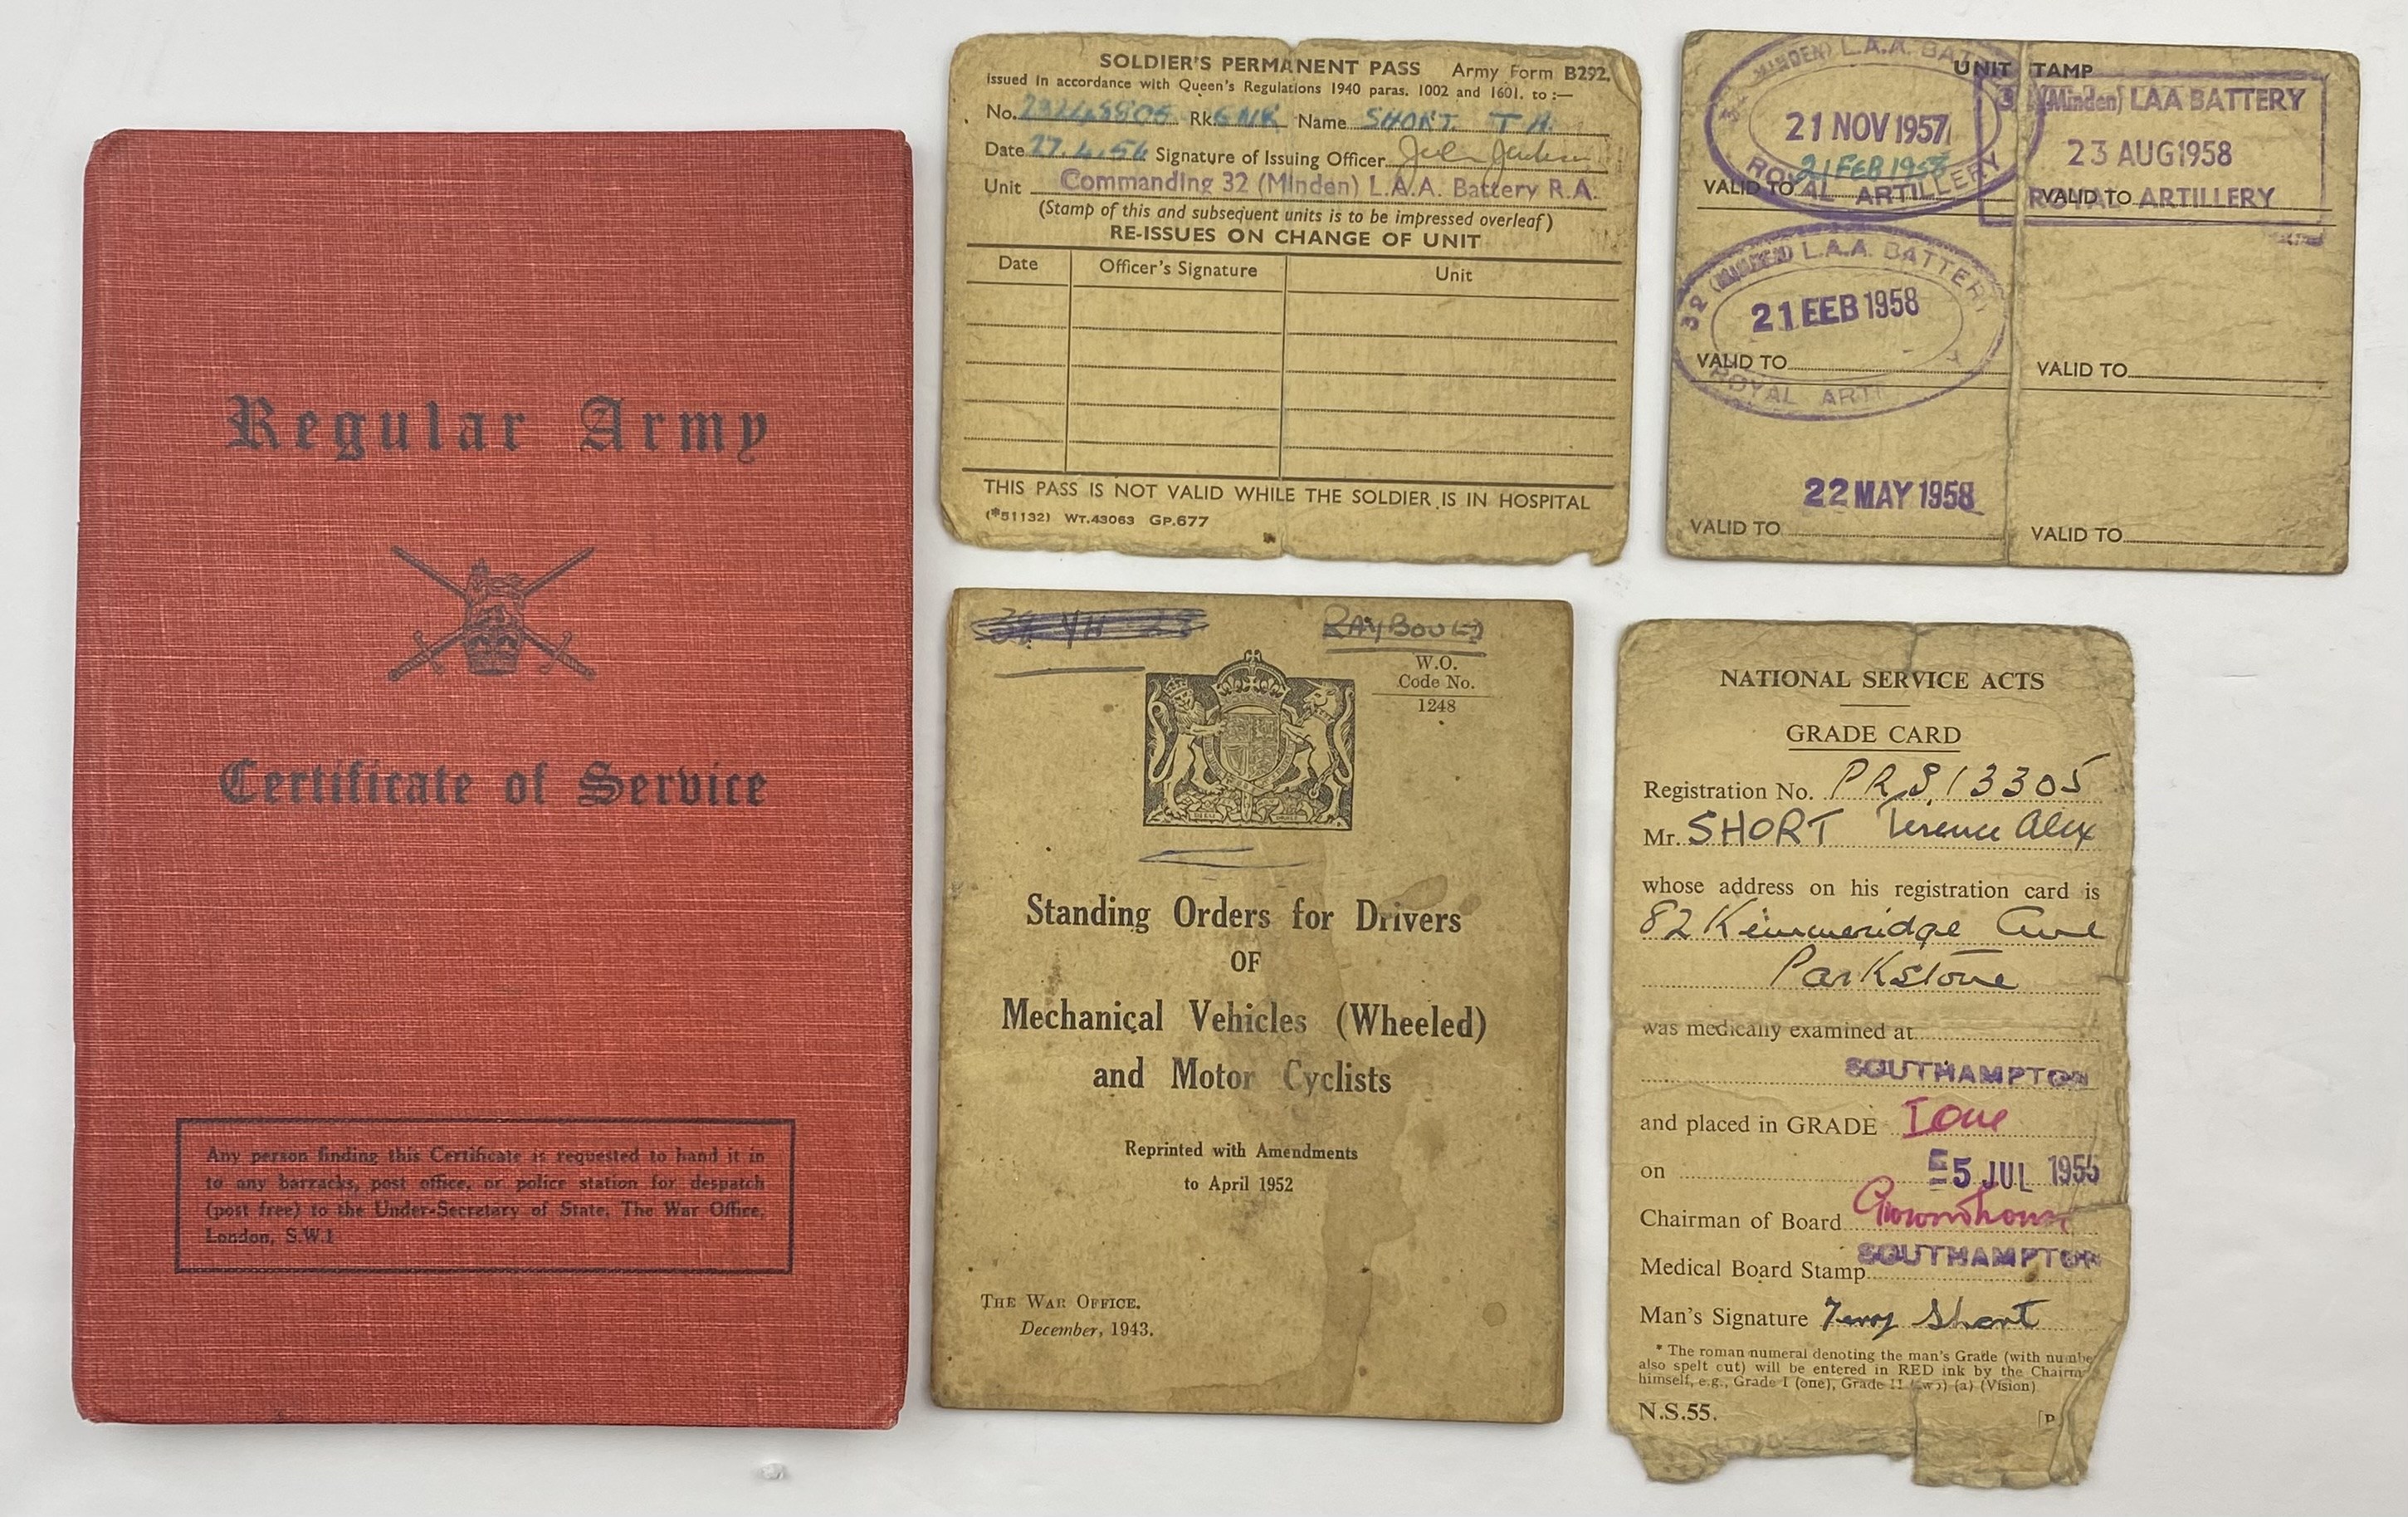 Regular Army
Certificate of Service
Any person finding this Certificate is requested to hand it in
to any barracks, post office, or police station for despatch
(post free) to the Under-Secretary of State, The War Office,
London, S.W.1
SOLDIER'S PERMANENT PASS Army Form B292.
Issued in accordance with Queen's Regulations 1940 paras. 1002 and 1601. to :—
No. Rk. GNR Name SHORT. T A.
Date 27.4.56 Signature of Issuing Officer
Unit Commanding 32 (Minden) L.A.A. Battery R.A.
(Stamp of this and subsequent units is to be impressed overleaf)
RE-ISSUES ON CHANGE OF UNIT
Date Officer's Signature Unit
THIS PASS IS NOT VALID WHILE THE SOLDIER IS IN HOSPITAL
(*51132) WT.43063 GP.677
UNIT TAMP
(MINDEN) L.A.A. BAT
21 NOV 1957
21 FEB 1958
VALID TO
ROYAL ARTILLERY
3 (Minden) LAA BATTERY
23 AUG 1958
VALID TO
ROYAL ARTILLERY
32 (MINDEN) L.A.A. BATTERY
21 FEB 1958
VALID TO
ROYAL ARTI Y
VALID TO
22 MAY 1958
VALID TO
VALID TO
RAYBOULD
W.O.
Code No.
1248
Standing Orders for Drivers
OF
Mechanical Vehicles (Wheeled)
and Motor Cyclists
Reprinted with Amendments
to April 1952
THE WAR OFFICE.
December, 1943.
NATIONAL SERVICE ACTS
GRADE CARD
Registration No. PRS.13305
Mr. SHORT Terence Alex
whose address on his registration card is
82 Kimmeridge Ave
Parkstone
was medically examined at
SOUTHAMPTON
and placed in GRADE I One
on 5 JUL 1955
Chairman of Board
SOUTHAMPTON
Medical Board Stamp
Man's Signature Terry Short
* The roman numeral denoting the man's Grade (with numbe
also spelt out) will be entered in RED ink by the Chairm
himself, e.g., Grade I (one), Grade II (two) (a) (Vision)
N.S.55.
[P.